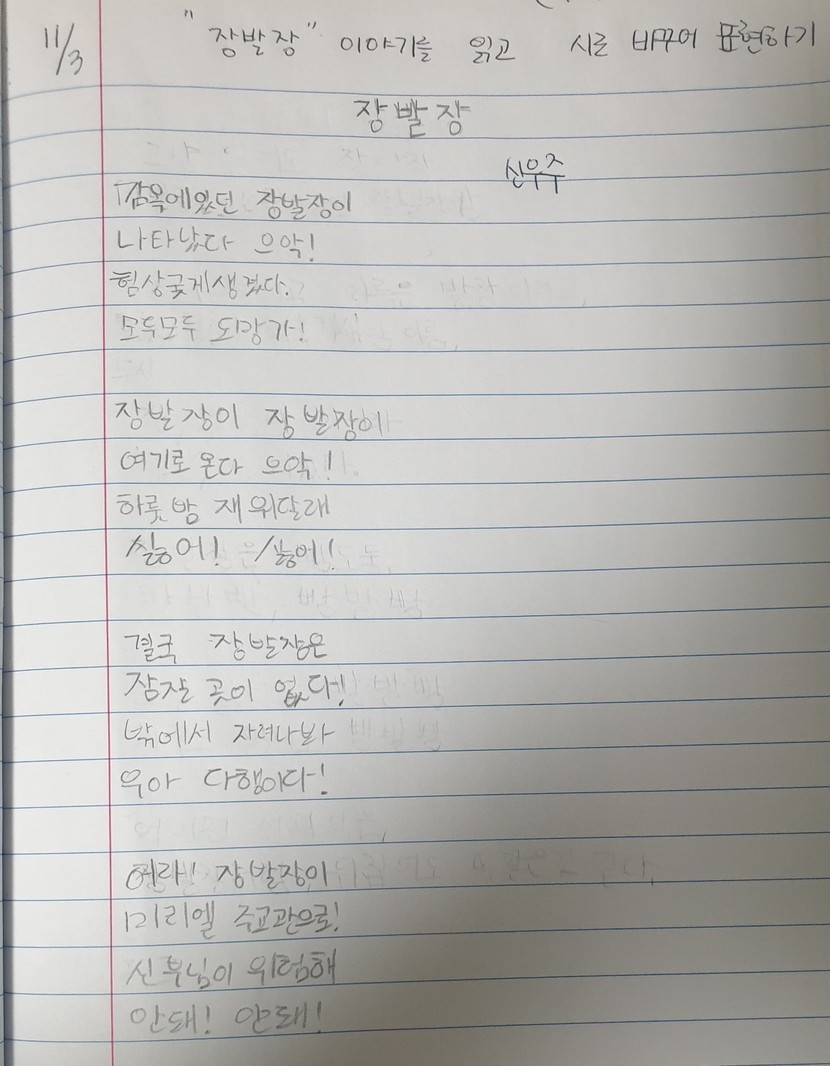 11/3
"장발장" 이야기를 읽고 시로 바꾸어 표현하기
장발장
신우주
감옥에있던 장발장이
나타났다 으악!
험상궂게생겼다.
모두모두 도망가!
장발장이 장발장이
여기로온다 으악!
하룻밤 재워달래
싫어! 싫어!
결국 장발장은
잠잘 곳이 없다!
밖에서 자려나봐
우아 다행이다!
어라! 장발장이
미리엘 주교관으로!
신부님이 위험해
안돼! 안돼!